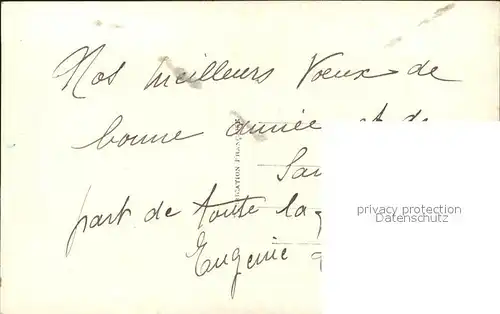 Nos meilleurs Vœux de
bonne année et de
San
part de toute la
Eugenie
ICATION FRANÇ
privacy protection
Datenschutz